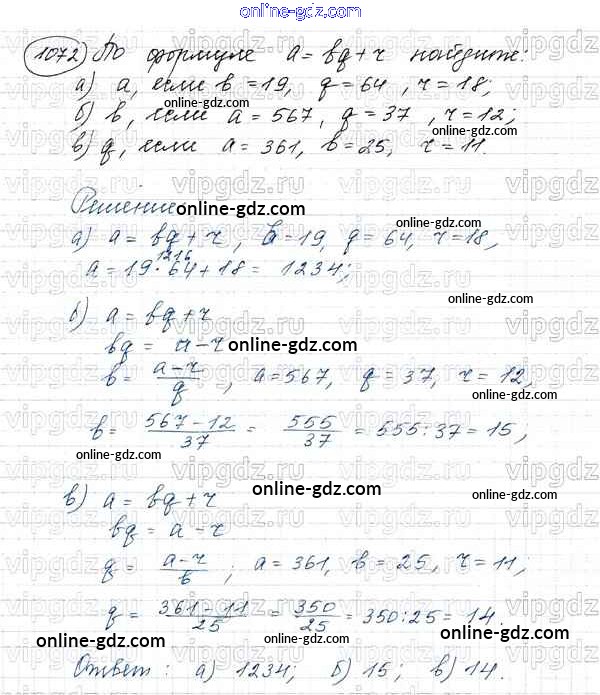 online-gdz.com
1072) По формуле a = bq + r найдите:
а) a, если b = 19, q = 64, r = 18;
online-gdz.com
б) b, если a = 567, q = 37, r = 12;
online-gdz.com
в) q, если a = 361, b = 25, r = 11.
vipgdz.ru
Решение
online-gdz.com
а) a = bq + r, b = 19, q = 64, r = 18,
online-gdz.com
1216
a = 19 · 64 + 18 = 1234;
online-gdz.com
б) a = bq + r
bq = a - r
online-gdz.com
b = (a - r)/q, a = 567, q = 37, r = 12,
online-gdz.com
b = (567 - 12)/37 = 555/37 = 555 : 37 = 15;
online-gdz.com
в) a = bq + r
online-gdz.com
online-gdz.com
bq = a - r
q = (a - r)/b; a = 361, b = 25, r = 11;
online-gdz.com
q = (361 - 11)/25 = 350/25 = 350 : 25 = 14.
online-gdz.com
online-gdz.com
Ответ: а) 1234; б) 15; в) 14.
online-gdz.com